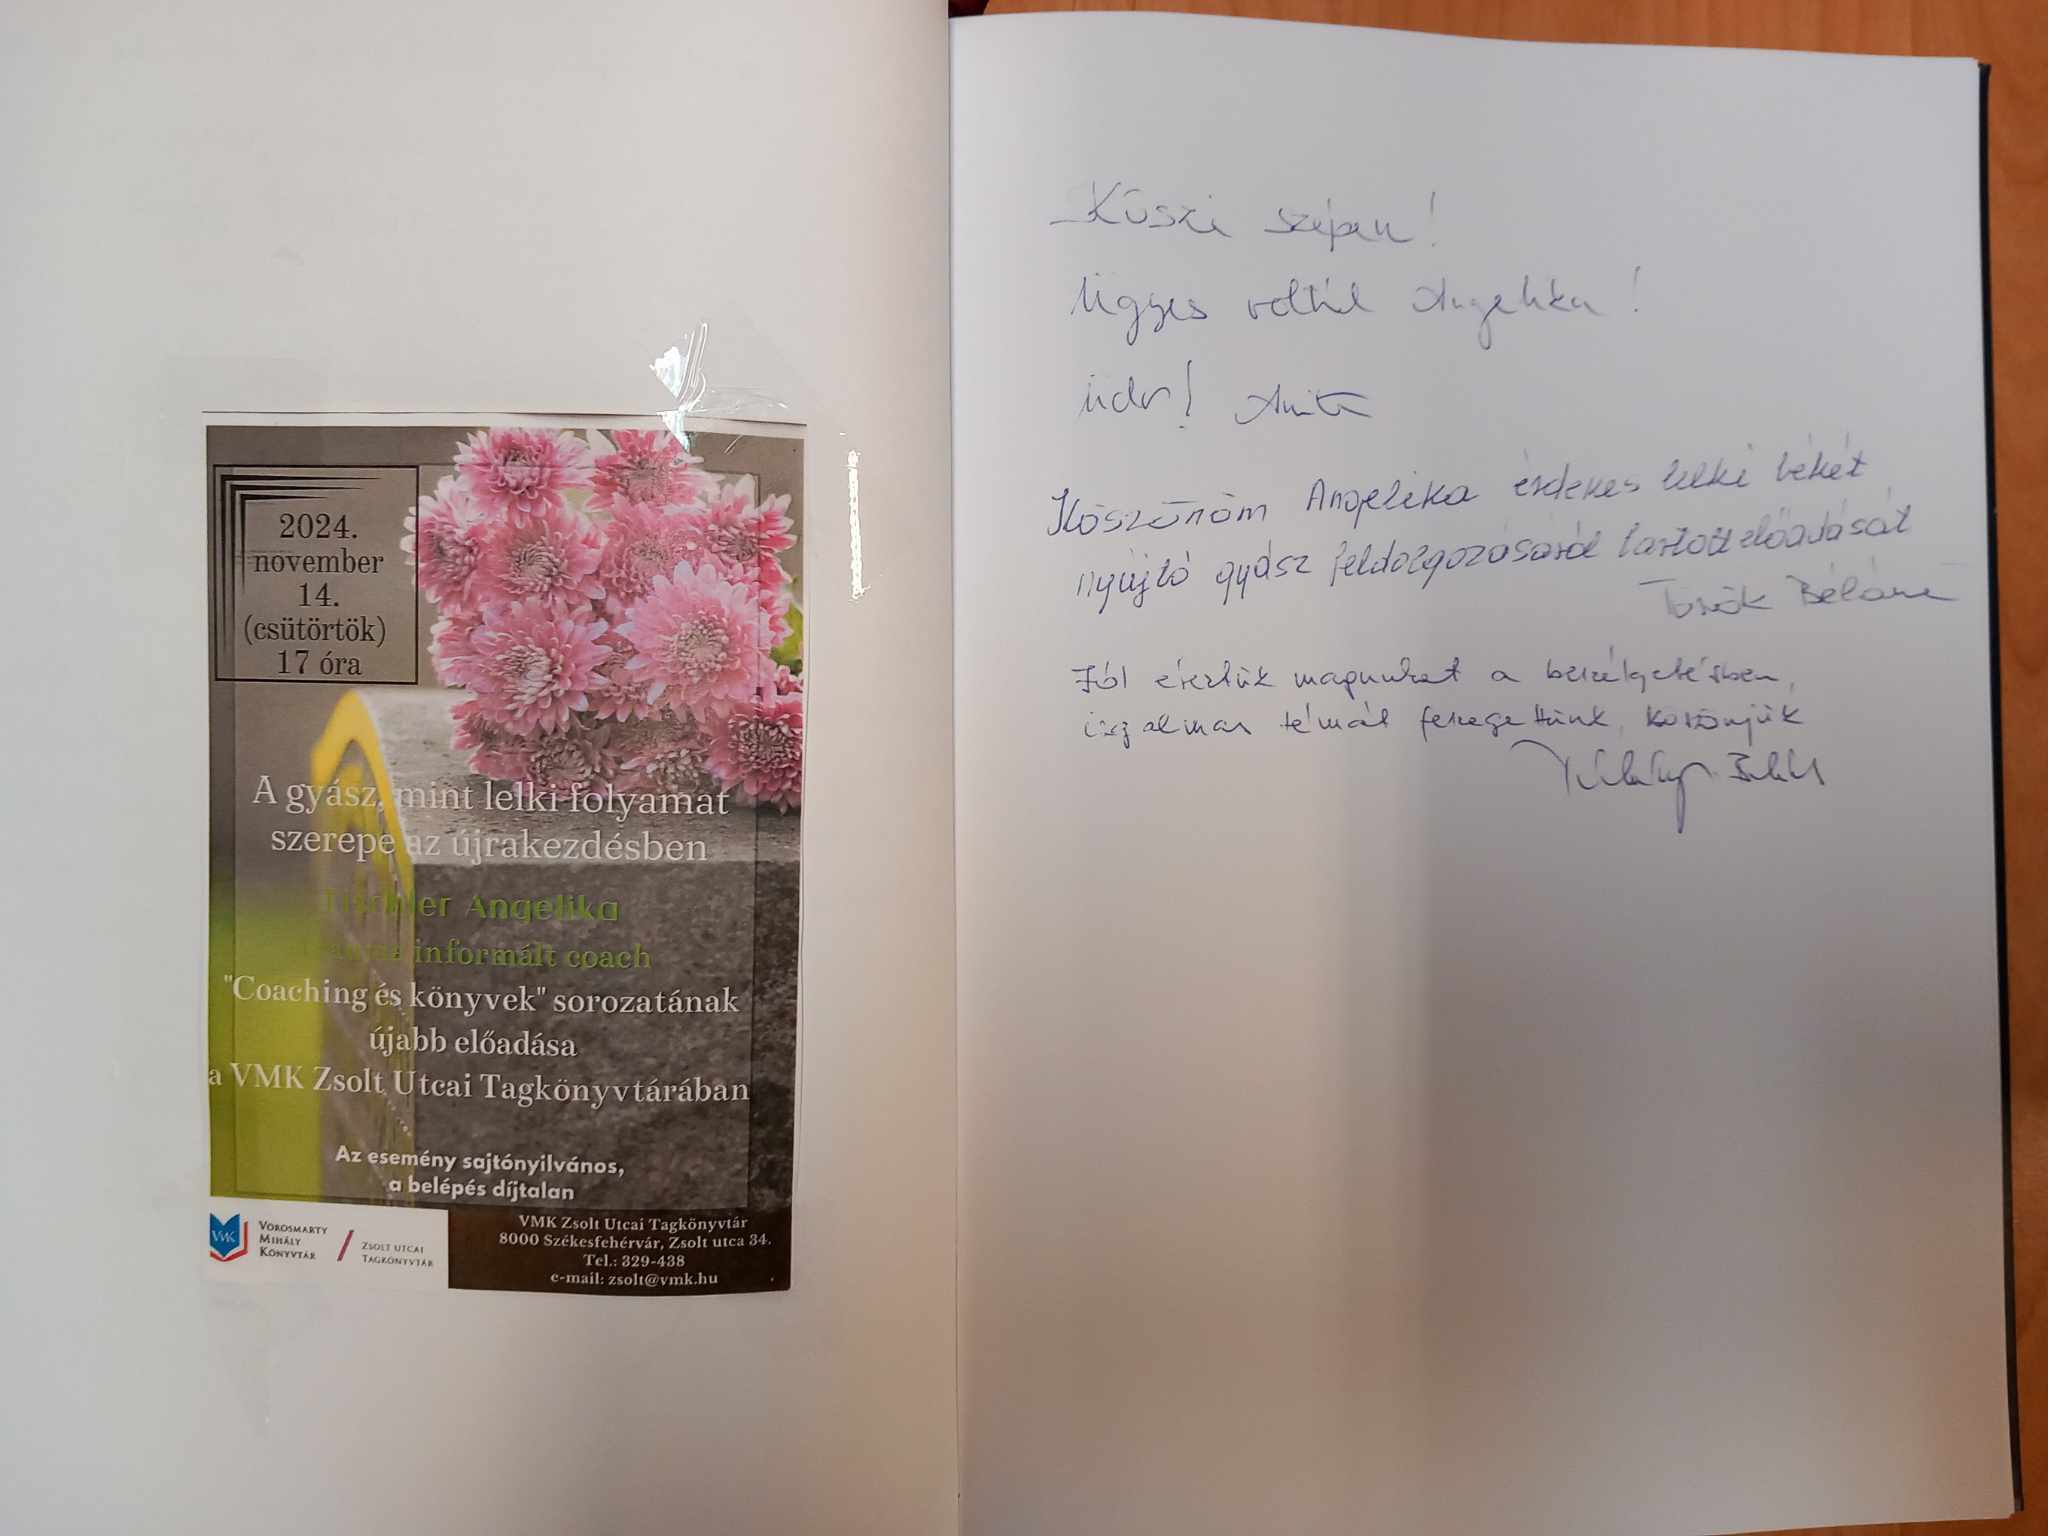 2024.
november
14.
(csütörtök)
17 óra
A gyász, mint lelki folyamat
szerepe az újrakezdésben
Tischler Angelika
trauma informált coach
"Coaching és könyvek" sorozatának
újabb előadása
a VMK Zsolt Utcai Tagkönyvtárában
Az esemény sajtónyilvános,
a belépés díjtalan
VMK
VÖRÖSMARTY
MIHÁLY
KÖNYVTÁR
ZSOLT UTCAI
TAGKÖNYVTÁR
VMK Zsolt Utcai Tagkönyvtár
8000 Székesfehérvár, Zsolt utca 34.
Tel.: 329-438
e-mail: zsolt@vmk.hu
Köszi szépen!
Ügyes voltál Angelika!
Üdv! Anita
Köszönöm Angelika érdekes lelki békét
nyújtó gyász feldolgozásáról tartott előadását
Török Béláné
Jól éreztük magunkat a beszélgetésben,
izgalmas témát feszegettünk, köszönjük